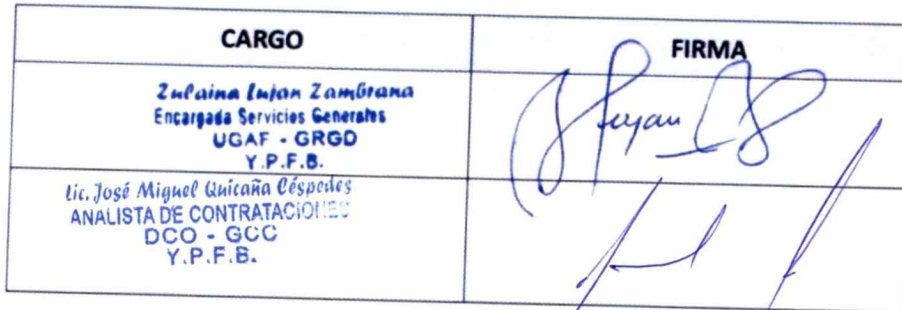 CARGO
FIRMA
Zulaina Lujan Zambrana
Encargada Servicios Generales
UGAF - GRGD
Y.P.F.B.
Lic. José Miguel Quicaña Céspedes
ANALISTA DE CONTRATACIONES
DCO - GCC
Y.P.F.B.